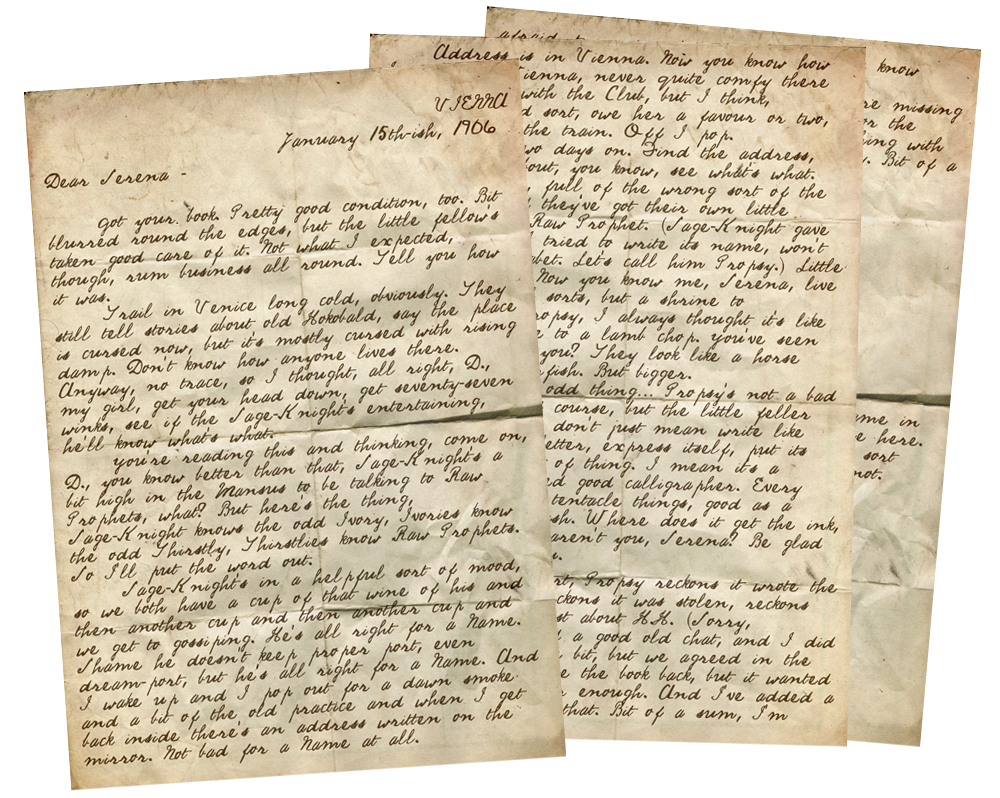 VIENNA
January 15th-ish, 1906
Dear Serena -
Got your book. Pretty good condition, too. Bit
blurred round the edges, but the little fellow's
taken good care of it. Not what I expected,
though, rum business all round. Tell you how
it was.
Trail in Venice long cold, obviously. They
still tell stories about old Hokobald, say the place
is cursed now, but it's mostly cursed with rising
damp. Don't know how anyone lives there.
Anyway, no trace, so I thought, all right, D.,
my girl, get your head down, get seventy-seven
winks, see if the Sage-Knight's entertaining,
he'll know what's what.
You're reading this and thinking, come on,
D., you know better than that, Sage-Knight's a
bit high in the Mansus to be talking to Raw
Prophets, what? But here's the thing,
Sage-Knight knows the odd Ivory, Ivories know
the odd Thirstly, Thirstlies know Raw Prophets.
So I'll put the word out.
Sage-Knight's in a helpful sort of mood,
so we both have a cup of that wine of his and
then another cup and then another cup and
we get to gossiping. He's all right for a Name.
Shame he doesn't keep proper port, even
dream-port, but he's all right for a Name. And
I wake up and I pop out for a dawn smoke
and a bit of the old practice and when I get
back inside there's an address written on the
mirror. Not bad for a Name at all.
Address is in Vienna. Now you know how
ienna, never quite comfy there
with the Club, but I think,
d sort, owe her a favour or two,
the train. Off I pop.
wo days on. Find the address,
bout, you know, see what's what.
full of the wrong sort of the
they've got their own little
Raw Prophet. (Sage-Knight gave
tried to write its name, won't
abet. Let's call him Propsy.) Little
Now you know me, Serena, live
sorts, but a shrine to
ropsy, I always thought it's like
e to a lamb chop. You've seen
you? They look like a horse
fish. But bigger.
odd thing... Propsy's not a bad
course, but the little feller
don't just mean write like
etter, express itself, put its
of thing. I mean it's a
d good calligrapher. Every
tentacle things, good as a
sh. Where does it get the ink,
aren't you, Serena? Be glad
u.
rt, Propsy reckons it wrote the
ckons it was stolen, reckons
st about H.H. (Sorry,
a good old chat, and I did
bit, but we agreed in the
e the book back, but it wanted
r enough. And I've added a
that. Bit of a sum, I'm
afraid
know
re missing
or the
ing with
. Bit of a
ome in
e here.
sort
not.